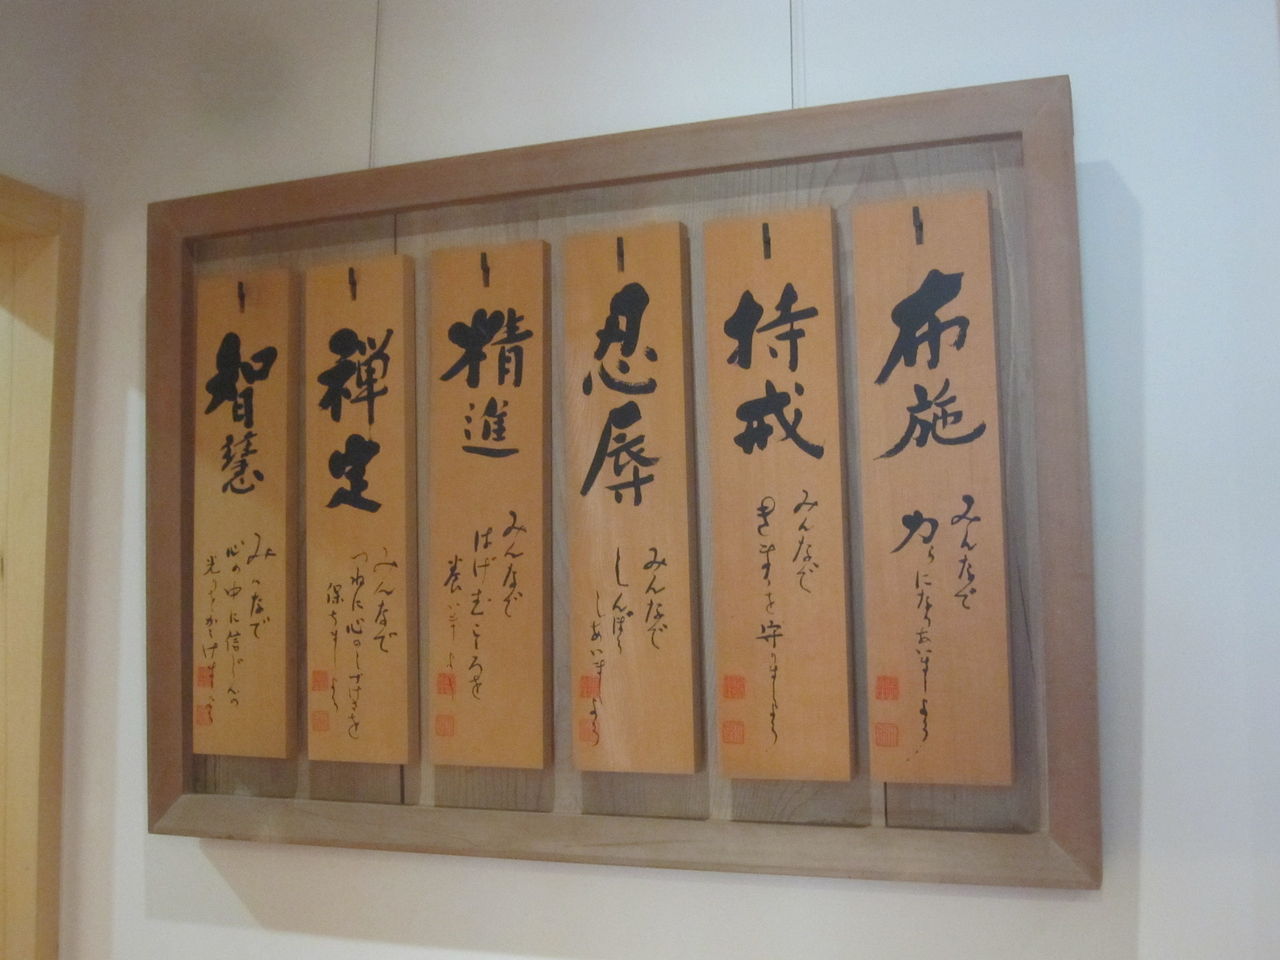 布施
みんなで
力になりあいましょう
持戒
みんなで
きまりを守りましょう
忍辱
みんなで
しんぼう
しあいましょう
精進
みんなで
はげむこころを
養いましょう
禅定
みんなで
つねに心のしづけさを
保ちましょう
智慧
みんなで
心の中に信じんの
光りをかゝげましょう